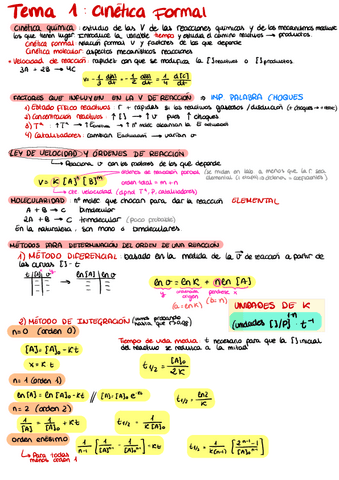 Tema 1: Cinética Formal
Cinética química: estudio de las V de las reacciones químicas y de los mecanismos mediante
los que tienen lugar. Introduce la variable tiempo y estudia el camino reactivos → productos.
Cinética formal relación formal V y factores de los que depende
Cinética molecular aspectos mecanísticos reacciones
* Velocidad de reacción: rapidez con que se modifica la [] reactivos o [] productos
3A + 2B → 4C
V = -1/3 d[A]/dt = -1/2 d[B]/dt = 1/4 d[C]/dt
FACTORES QUE INFLUYEN EN LA V DE REACCIÓN → IMP. PALABRA CHOQUES
1) Estado físico reactivos → + rápidas si los reactivos gaseosos / disolución (+ choques → + reac)
2) Concentración reactivos : ↑ [] → ↑ V pues ↑ choques
3) Tª : ↑ Tª → ↑ E → ↑ nº molec alcanzan la E
4) Catalizadores: cambian → varían V
LEY DE VELOCIDAD Y ÓRDENES DE REACCIÓN
Relaciona V con los factores de los que depende
V = K [A]ⁿ [B]ᵐ
orden total = m + n
cte velocidad (dpnd Tª, P, catalizadores)
MOLECULARIDAD: nº molec que chocan para dar la reacción ELEMENTAL
A + B → C bimolecular
2A + B → C trimolecular (poco probable)
En la naturaleza, son mono o bimoleculares
MÉTODOS PARA DETERMINACIÓN DEL ORDEN DE UNA REACCIÓN
1) MÉTODO DIFERENCIAL: basado en la medida de la V de reacción a partir de
las curvas [] - t
t | [A] | V → ln[A] | ln V
ln V = ln K + n ln [A]
ordenada origen
pendiente
(a = ln K) (b = n)
UNIDADES DE K
(unidades []/P)¹⁻ⁿ · t⁻¹
2) MÉTODO DE INTEGRACIÓN
n=0 (orden 0)
[A] = [A]₀ - Kt
x = K t
Tiempo de vida media t necesario para que la [] inicial
del reactivo se reduzca a la mitad
t1/2 = [A]₀ / 2K
n = 1 (orden 1)
ln [A] = ln [A]₀ - Kt // [A] = [A]₀ e⁻ᴷᵗ
t1/2 = ln2 / K
n = 2 (orden 2)
1/[A] = 1/[A]₀ + Kt
t1/2 = 1 / K [A]₀
orden enésimo
1/n-1 [1/[A]ⁿ⁻¹ - 1/[A]₀ⁿ⁻¹] = Kt
t1/2 = 1/K(n-1) [2ⁿ⁻¹-1 / [A]₀ⁿ⁻¹]
Para todas menos orden 1